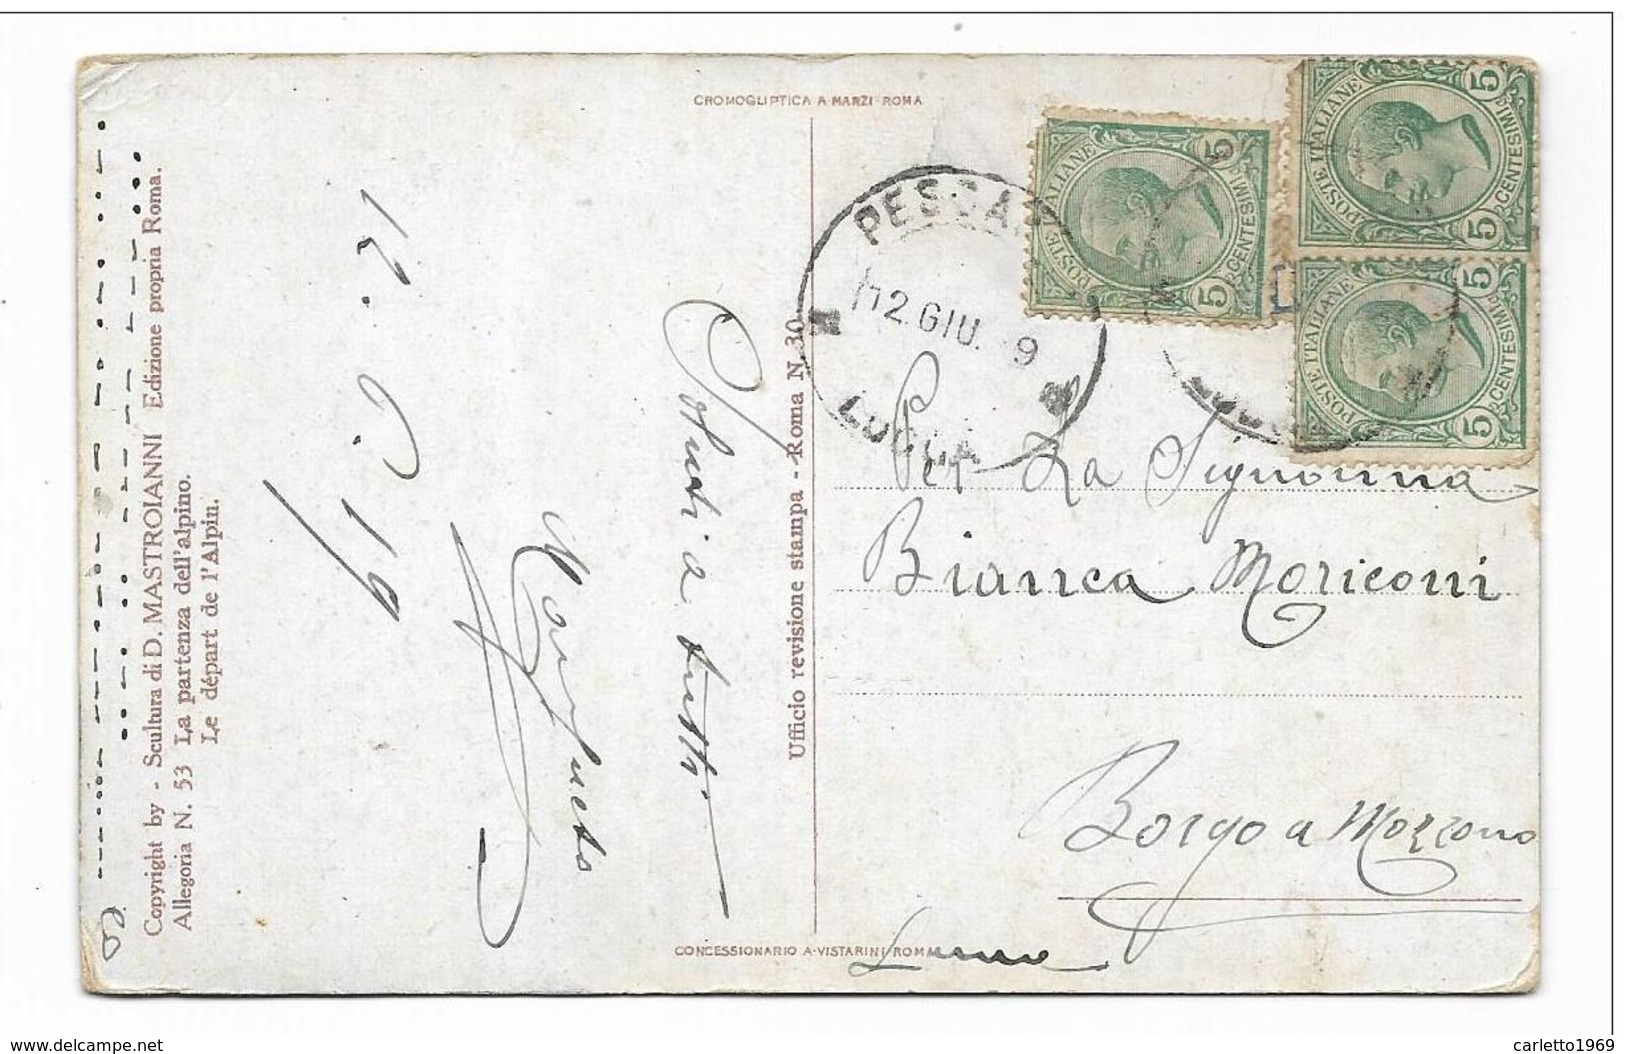 CROMOGLIPTICA A MARZI ROMA
POSTE ITALIANE
5 CENTESIMI 5
POSTE ITALIANE
5 CENTESIMI 5
POSTE ITALIANE
5 CENTESIMI 5
PESCA
12.GIU. 9
LUCCA
Copyright by - Scultura di D. MASTROIANNI Edizione propria Roma.
Allegoria N. 53 La partenza dell'alpino.
Le départ de l'Alpin.
12. 6. 19
Saluti a tutti
Ufficio revisione stampa - Roma N. 30
Per La Signorina
Bianca Moriconi
Borgo a Mozzano
CONCESSIONARIO A-VISTARINI-ROMA
www.delcampe.net
carletto1969